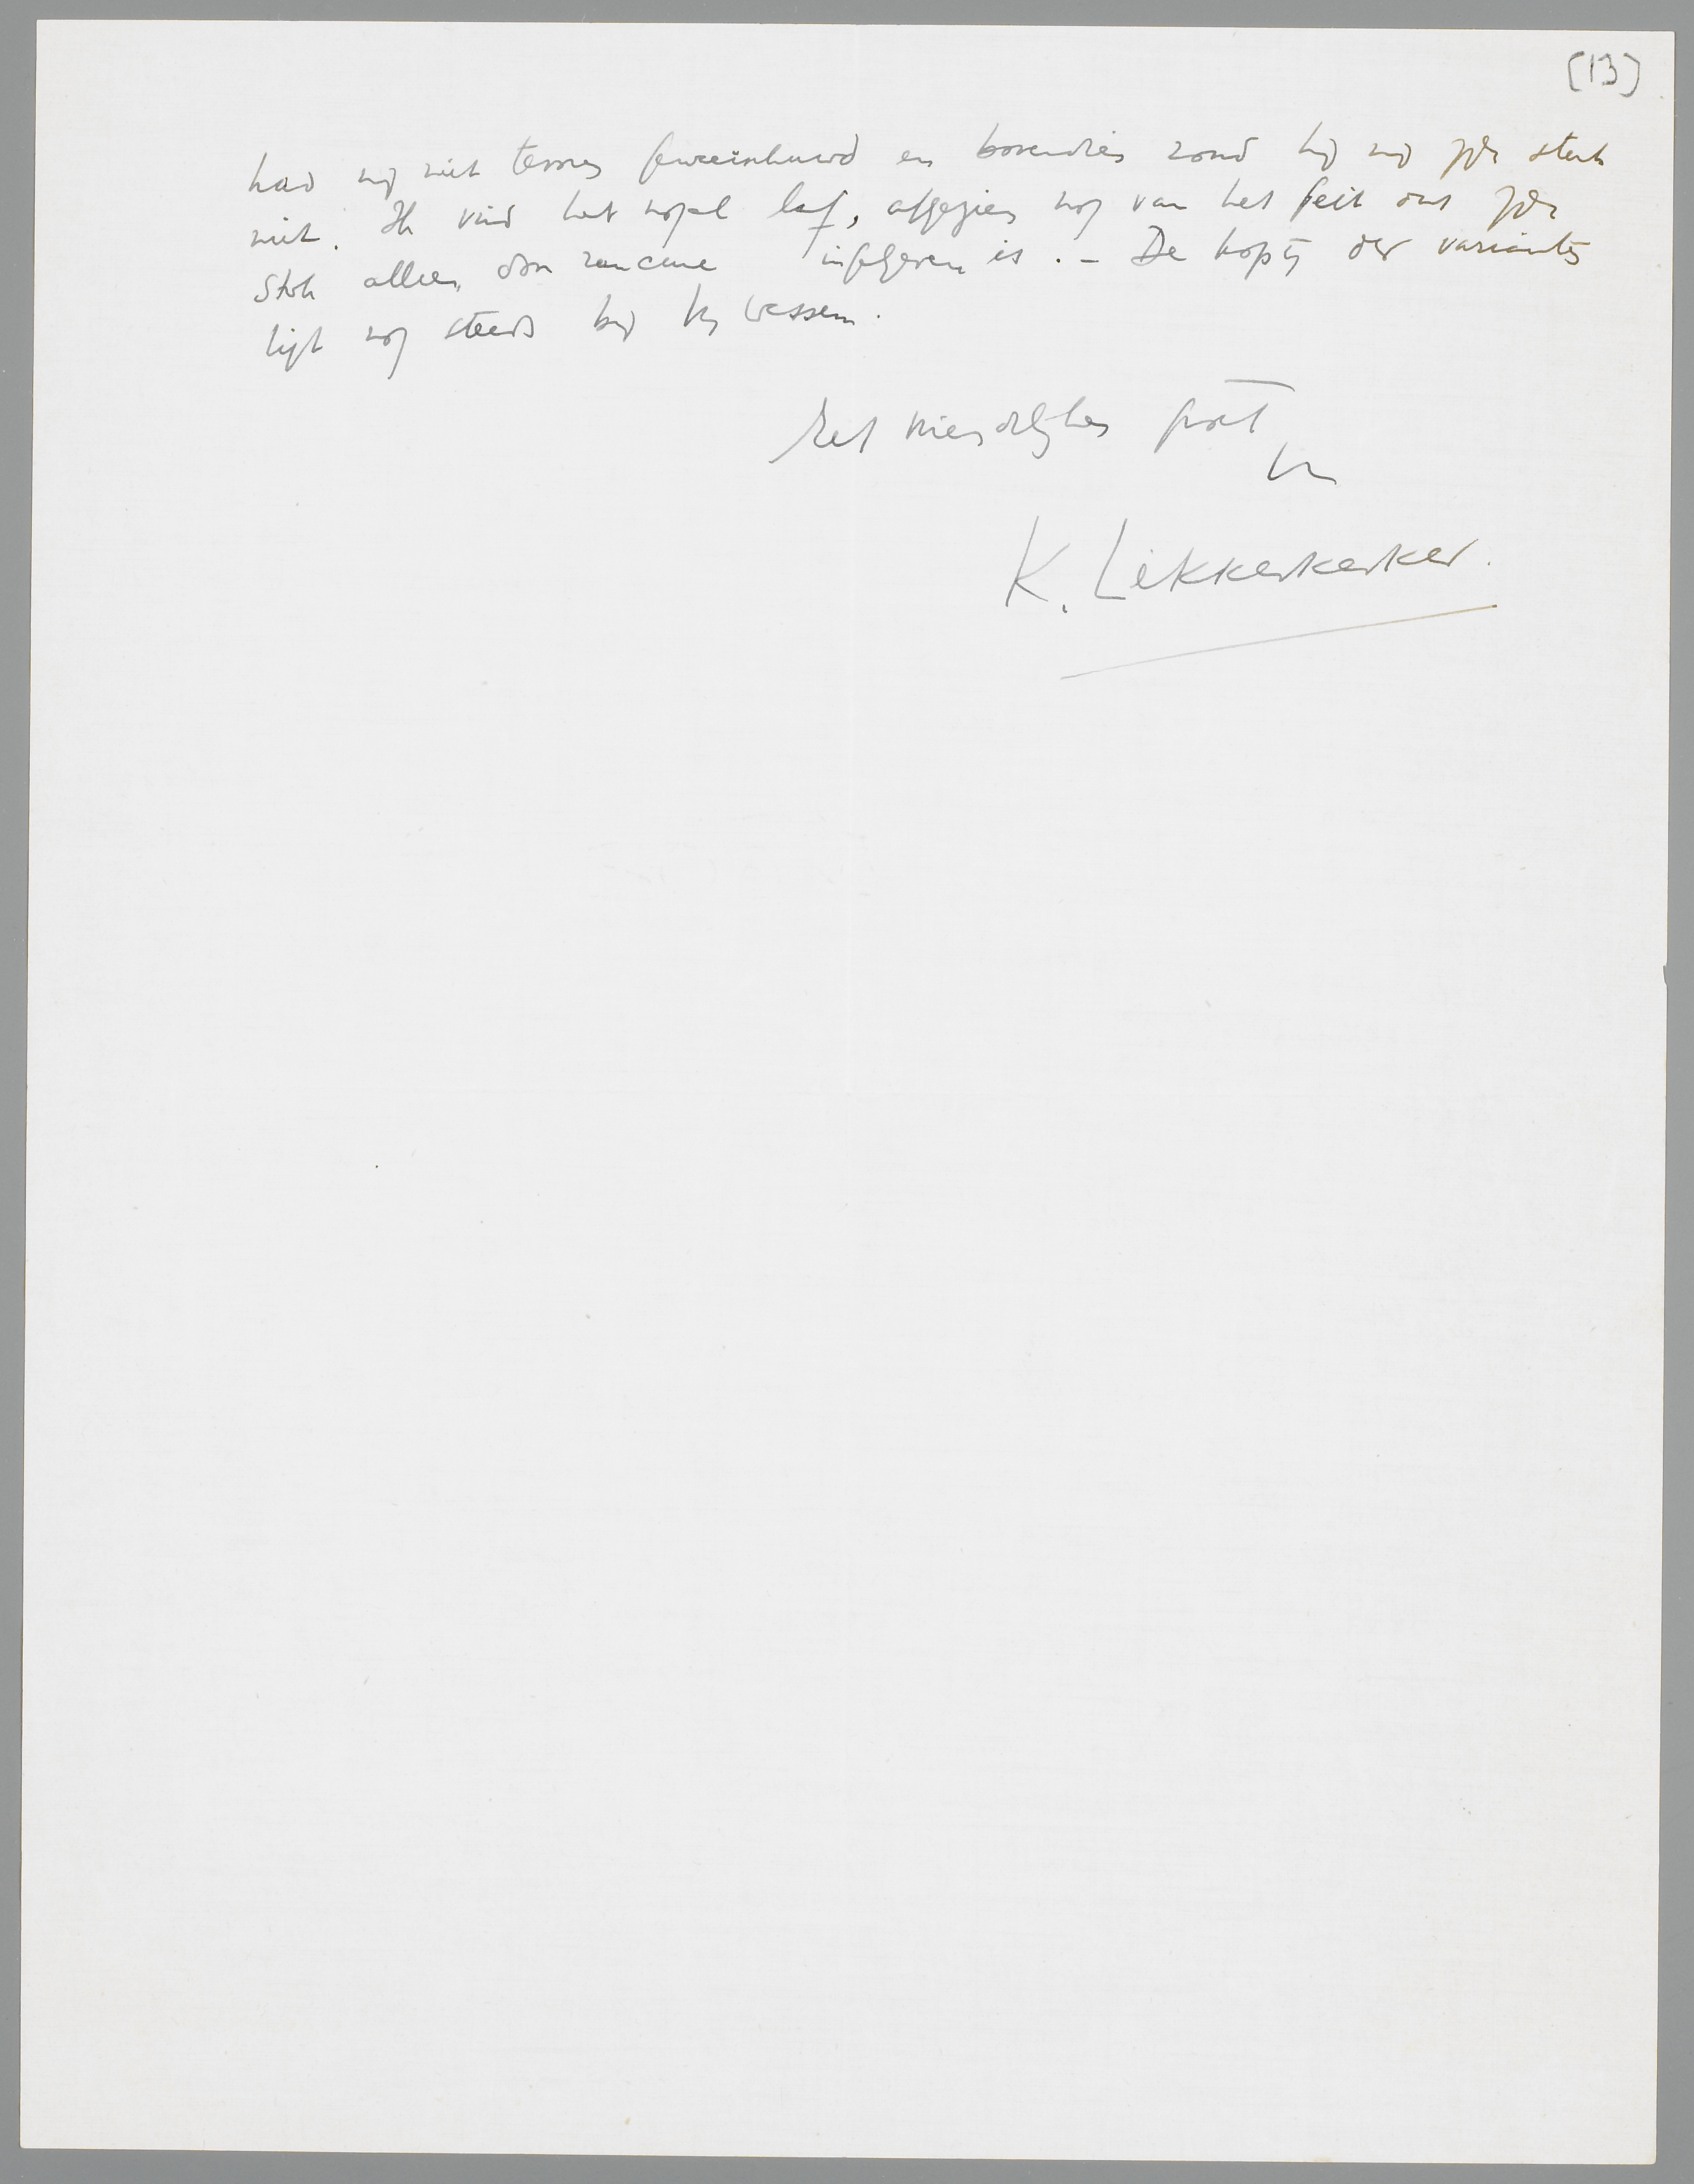 [13]
had mij niet tevoren gewaarschuwd en bovendien zond hij mij zijn stuk
niet. Ik vind het nogal laf, afgezien nog van het feit dat zijn
stuk alleen door rancune ingegeven is. – De kopij der varianten
ligt nog steeds bij v. Wessem.
Met vriendelijken groet,
Uw
K. Lekkerkerker.